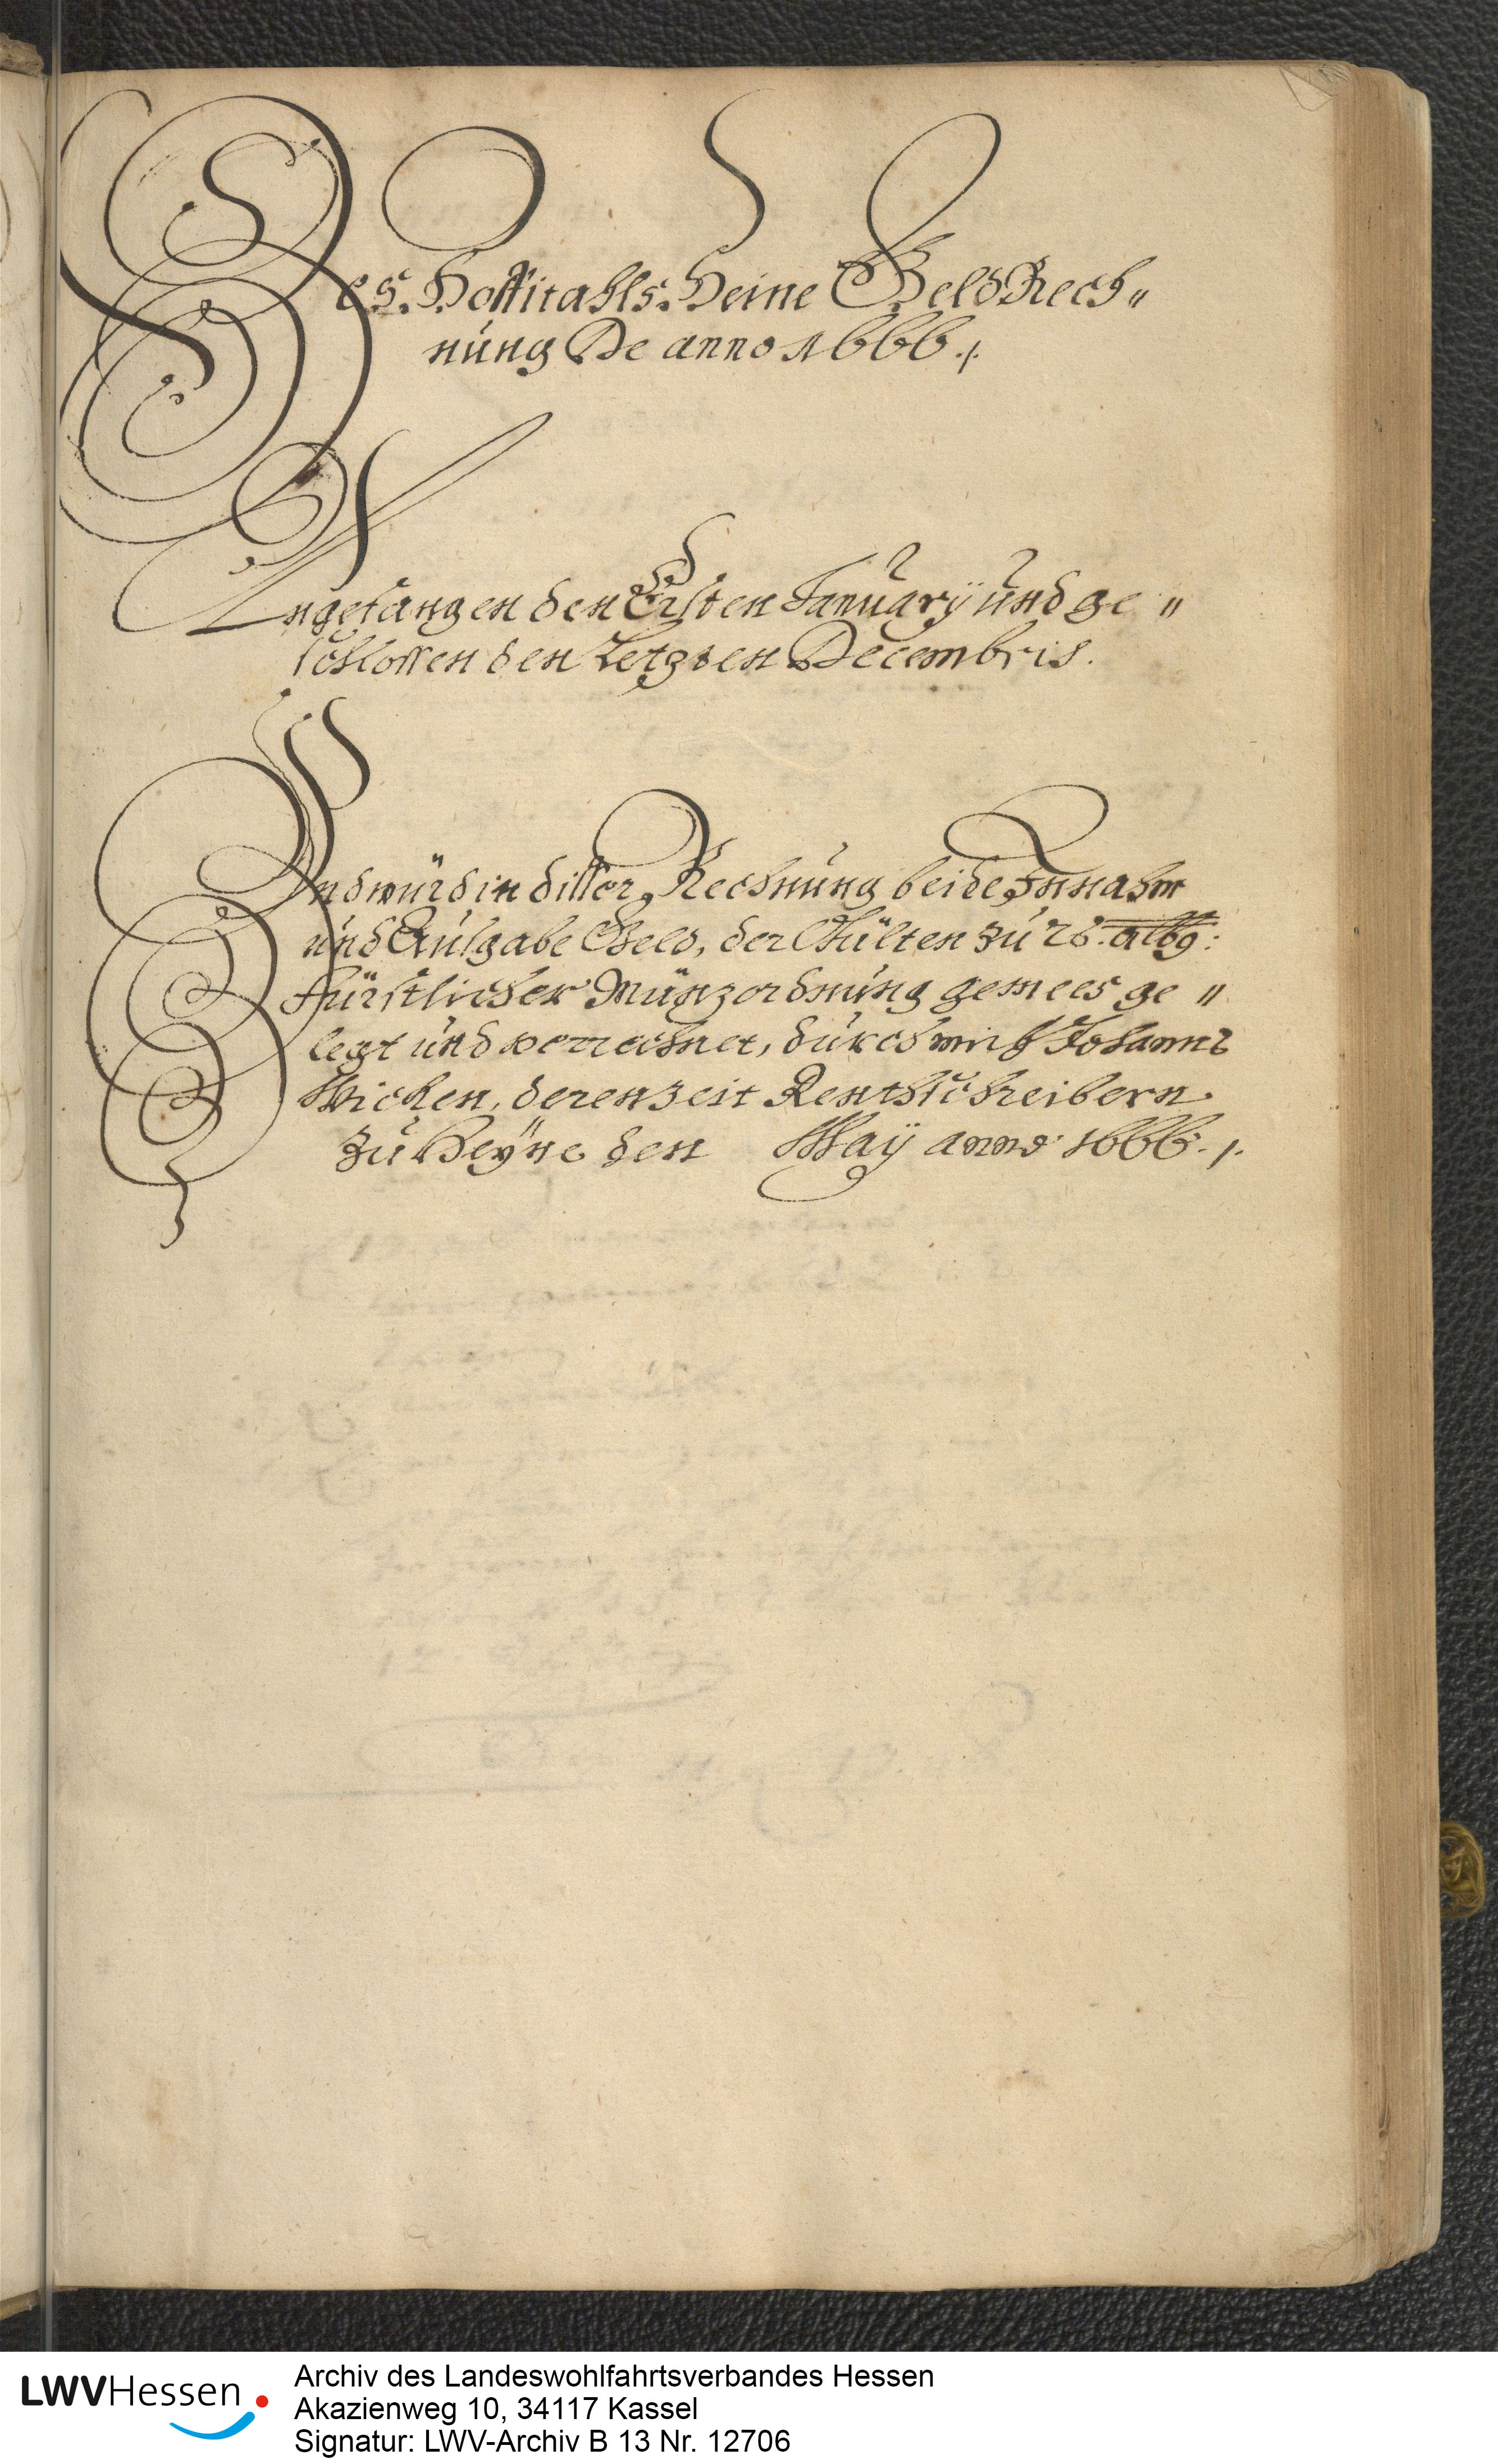 Des Hospitahls Heine Geld Rech„
nung De anno 1666./.
Angefangen den Ersten January und ge„
schlossen den Letzten Decembris.
Und würd in disser Rechnung beide Innahm
und Ausgabe Geld, der Gülten zu 26. albg:
Fürstlicher Müntzordnung gemees ge„
legt und verrechnet, durch mich Johannes
Wicken, derenzeit Renthschreibern
zu Heyne den May anno 1666./.
LWVHessen
Archiv des Landeswohlfahrtsverbandes Hessen
Akazienweg 10, 34117 Kassel
Signatur: LWV-Archiv B 13 Nr. 12706